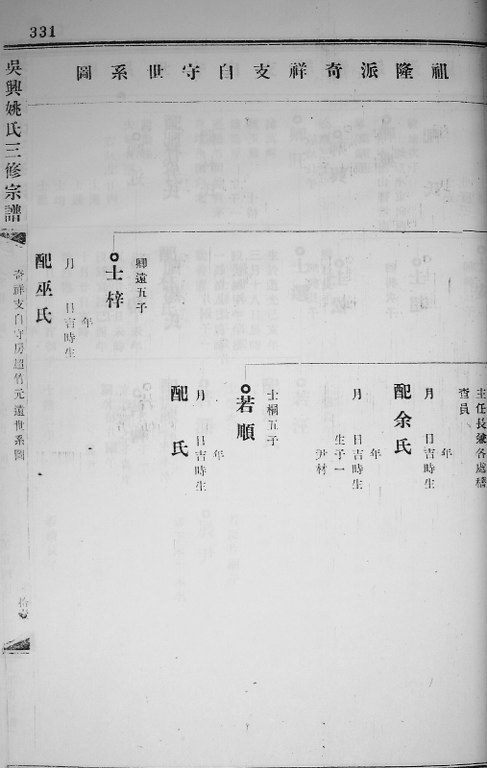 331
祖隆派奇祥支自守世系圖
主任長兼各處稽
查員
年
月 日吉時生
配余氏
年
月 日吉時生
生子一
尹材
士桐五子
若順
年
月 日吉時生
配 氏
卿遠五子
士梓
年
月 日吉時生
配巫氏
吳興姚氏三修宗譜
奇祥支自守房超竹元遠世系圖